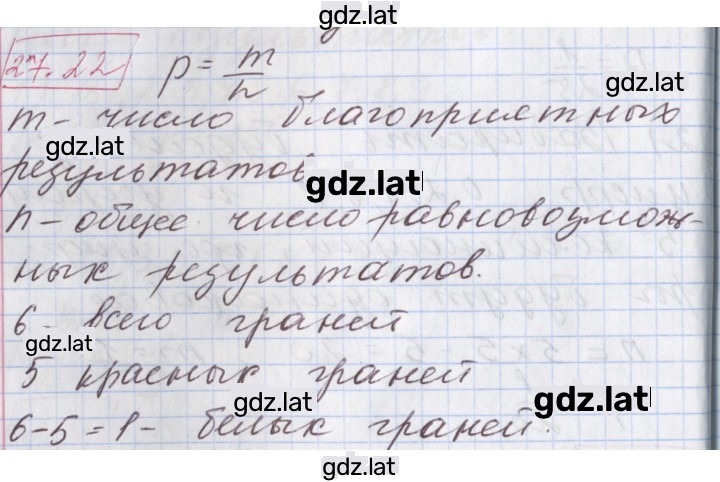 gdz.lat
27.22 p = m/n
gdz.lat
m - число благоприятных
gdz.lat
результатов
gdz.lat
n - общее число равновозмож-
ных результатов.
6 - всего граней
gdz.lat
5 красных граней
gdz.lat
6-5=1- белых граней.
gdz.lat